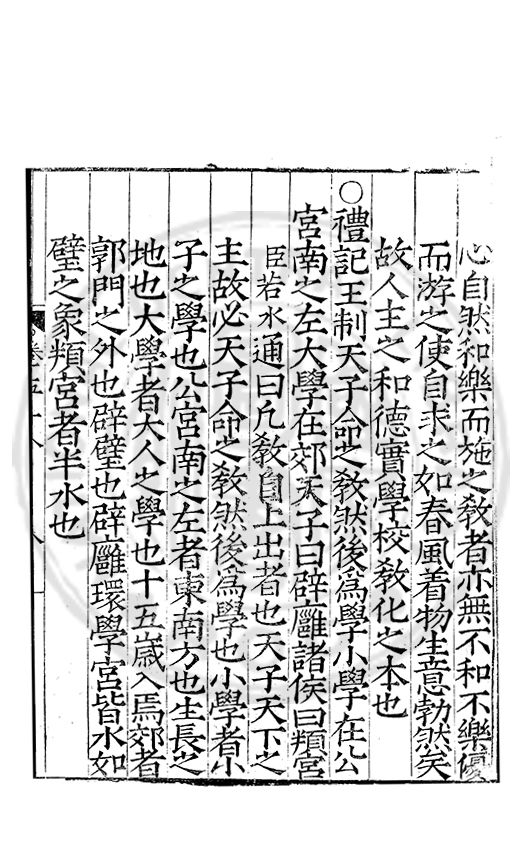 心自然和樂而施之敎者亦無不和不樂優
而游之使自求之如春風着物生意勃然矣
故人主之和德實學校敎化之本也
○禮記王制天子命之敎然後爲學小學在公
宮南之左大學在郊天子曰辟廱諸侯曰頖宮
臣若水通曰凡敎自上出者也天子天下之
主故必天子命之敎然後爲學也小學者小
子之學也公宮南之左者東南方也生長之
地也大學者大人之學也十五歲入焉郊者
郭門之外也辟璧也辟廱環學宮皆水如
璧之象頖宮者半水也